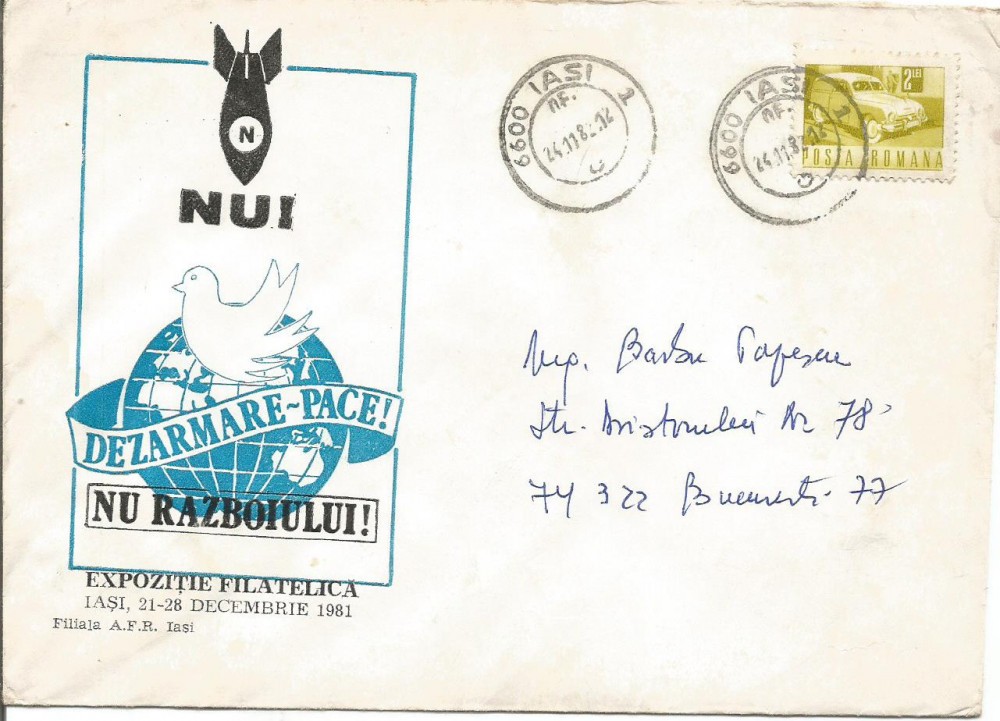 N
NU!
DEZARMARE-PACE!
NU RAZBOIULUI!
EXPOZIȚIE FILATELICĂ
IAȘI, 21-28 DECEMBRIE 1981
Filiala A.F.R. Iași
6600 IASI 1
24.11.82.12
6600 IASI 1
24.11.82.12
2 LEI
POSTA ROMANA
Ing. Barbu Popescu
Str. Nr 78
74 322 Bucuresti 77